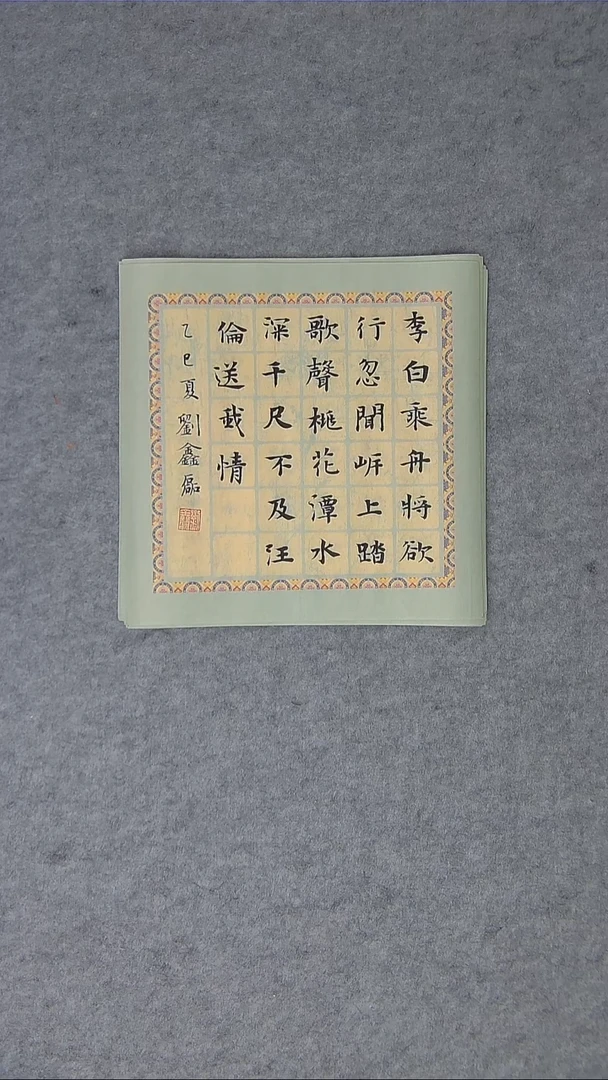 李白乘舟將欲
行忽聞岍上踏
歌聲桃花潭水
深千尺不及汪
倫送我情
乙巳夏劉鑫磊